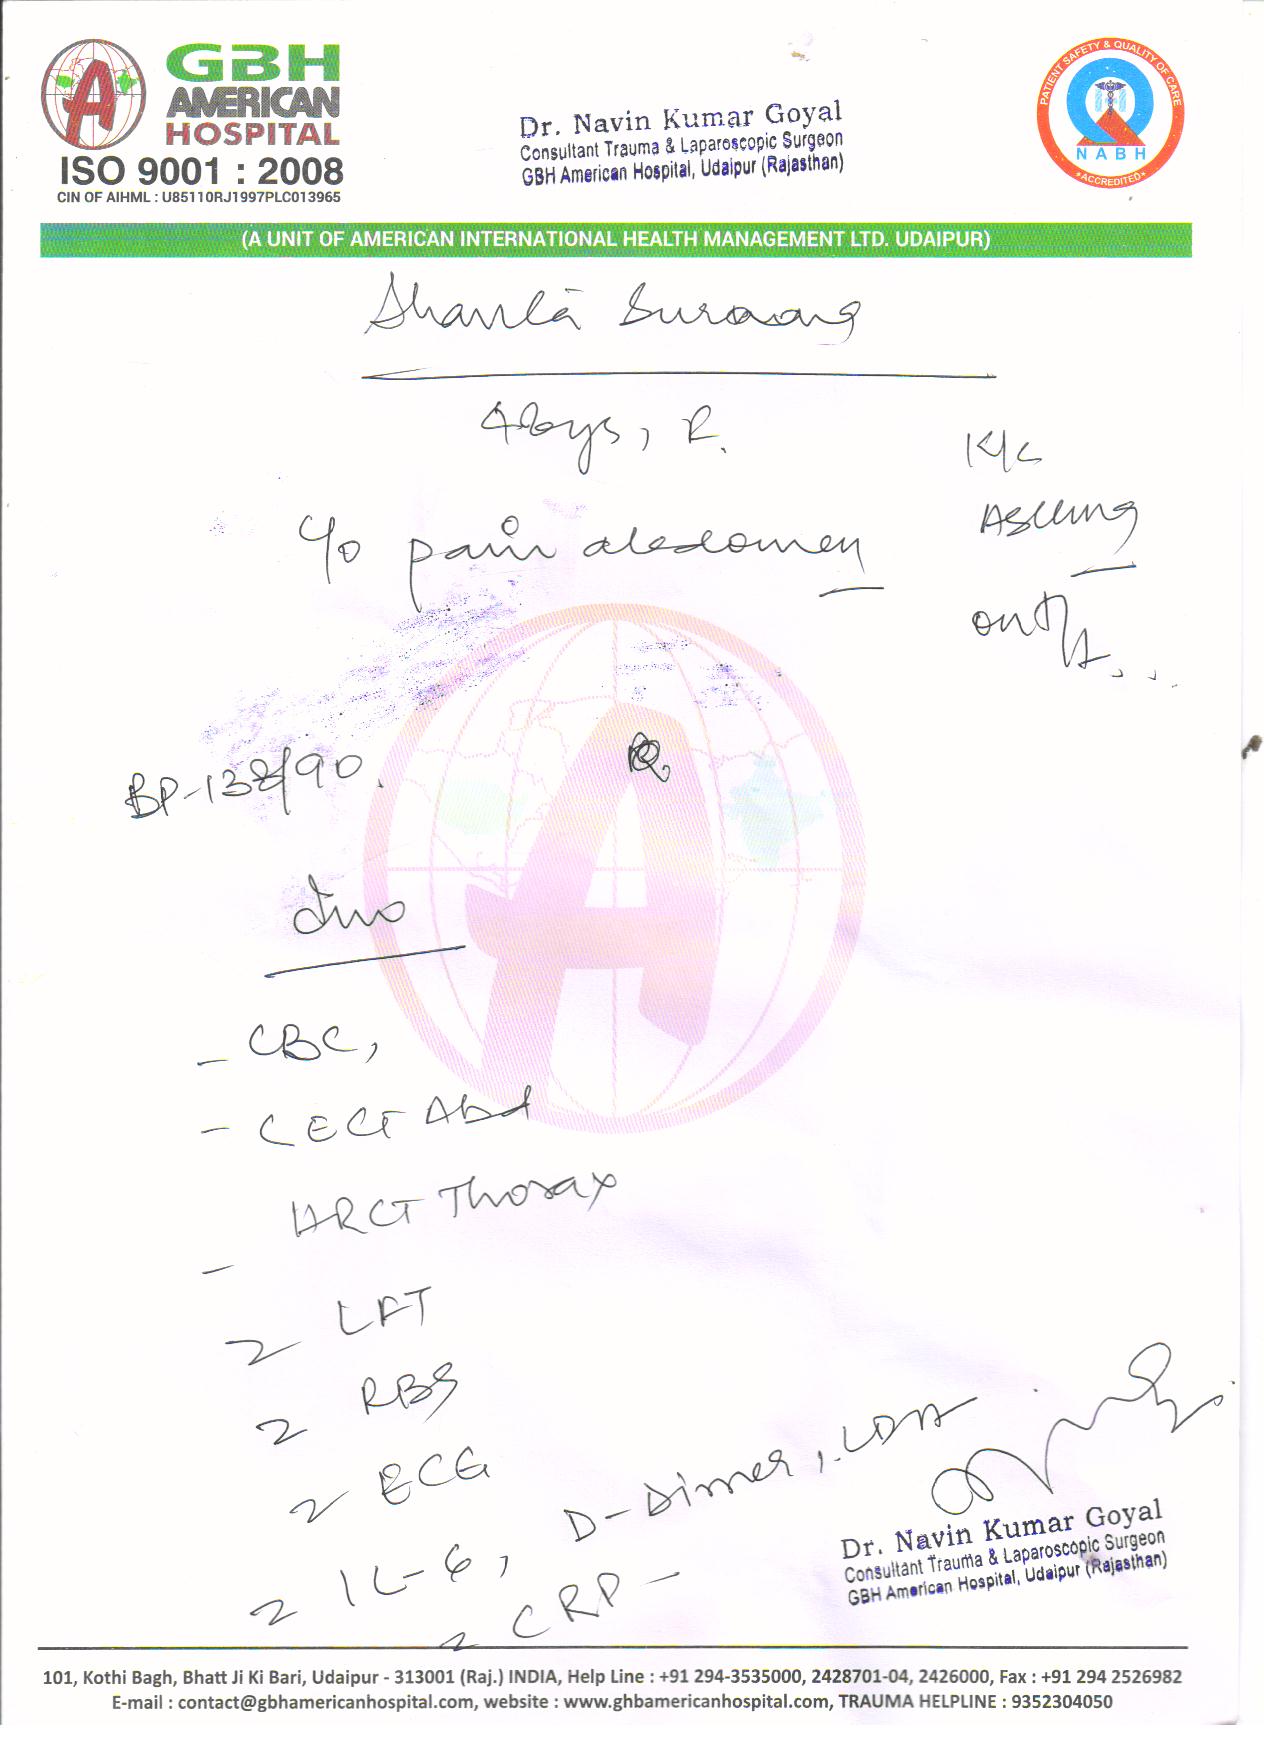 GBH
AMERICAN
HOSPITAL
ISO 9001 : 2008
CIN OF AIHML : U85110RJ1997PLC013965
Dr. Navin Kumar Goyal
Consultant Trauma & Laparoscopic Surgeon
GBH American Hospital, Udaipur (Rajasthan)
PATIENT SAFETY & QUALITY OF CARE
NABH
ACCREDITED
(A UNIT OF AMERICAN INTERNATIONAL HEALTH MANAGEMENT LTD. UDAIPUR)
Shanta
K/c
c/o pain abdomen
on
BP-138/90.
- CBC,
- CECT Abd
- HRCT Thorax
LFT
RBS
ECG
IL-6, D-Dimer,
CRP -
Dr. Navin Kumar Goyal
Consultant Trauma & Laparoscopic Surgeon
GBH American Hospital, Udaipur (Rajasthan)
101, Kothi Bagh, Bhatt Ji Ki Bari, Udaipur - 313001 (Raj.) INDIA, Help Line : +91 294-3535000, 2428701-04, 2426000, Fax : +91 294 2526982
E-mail : contact@gbhamericanhospital.com, website : www.ghbamericanhospital.com, TRAUMA HELPLINE : 9352304050